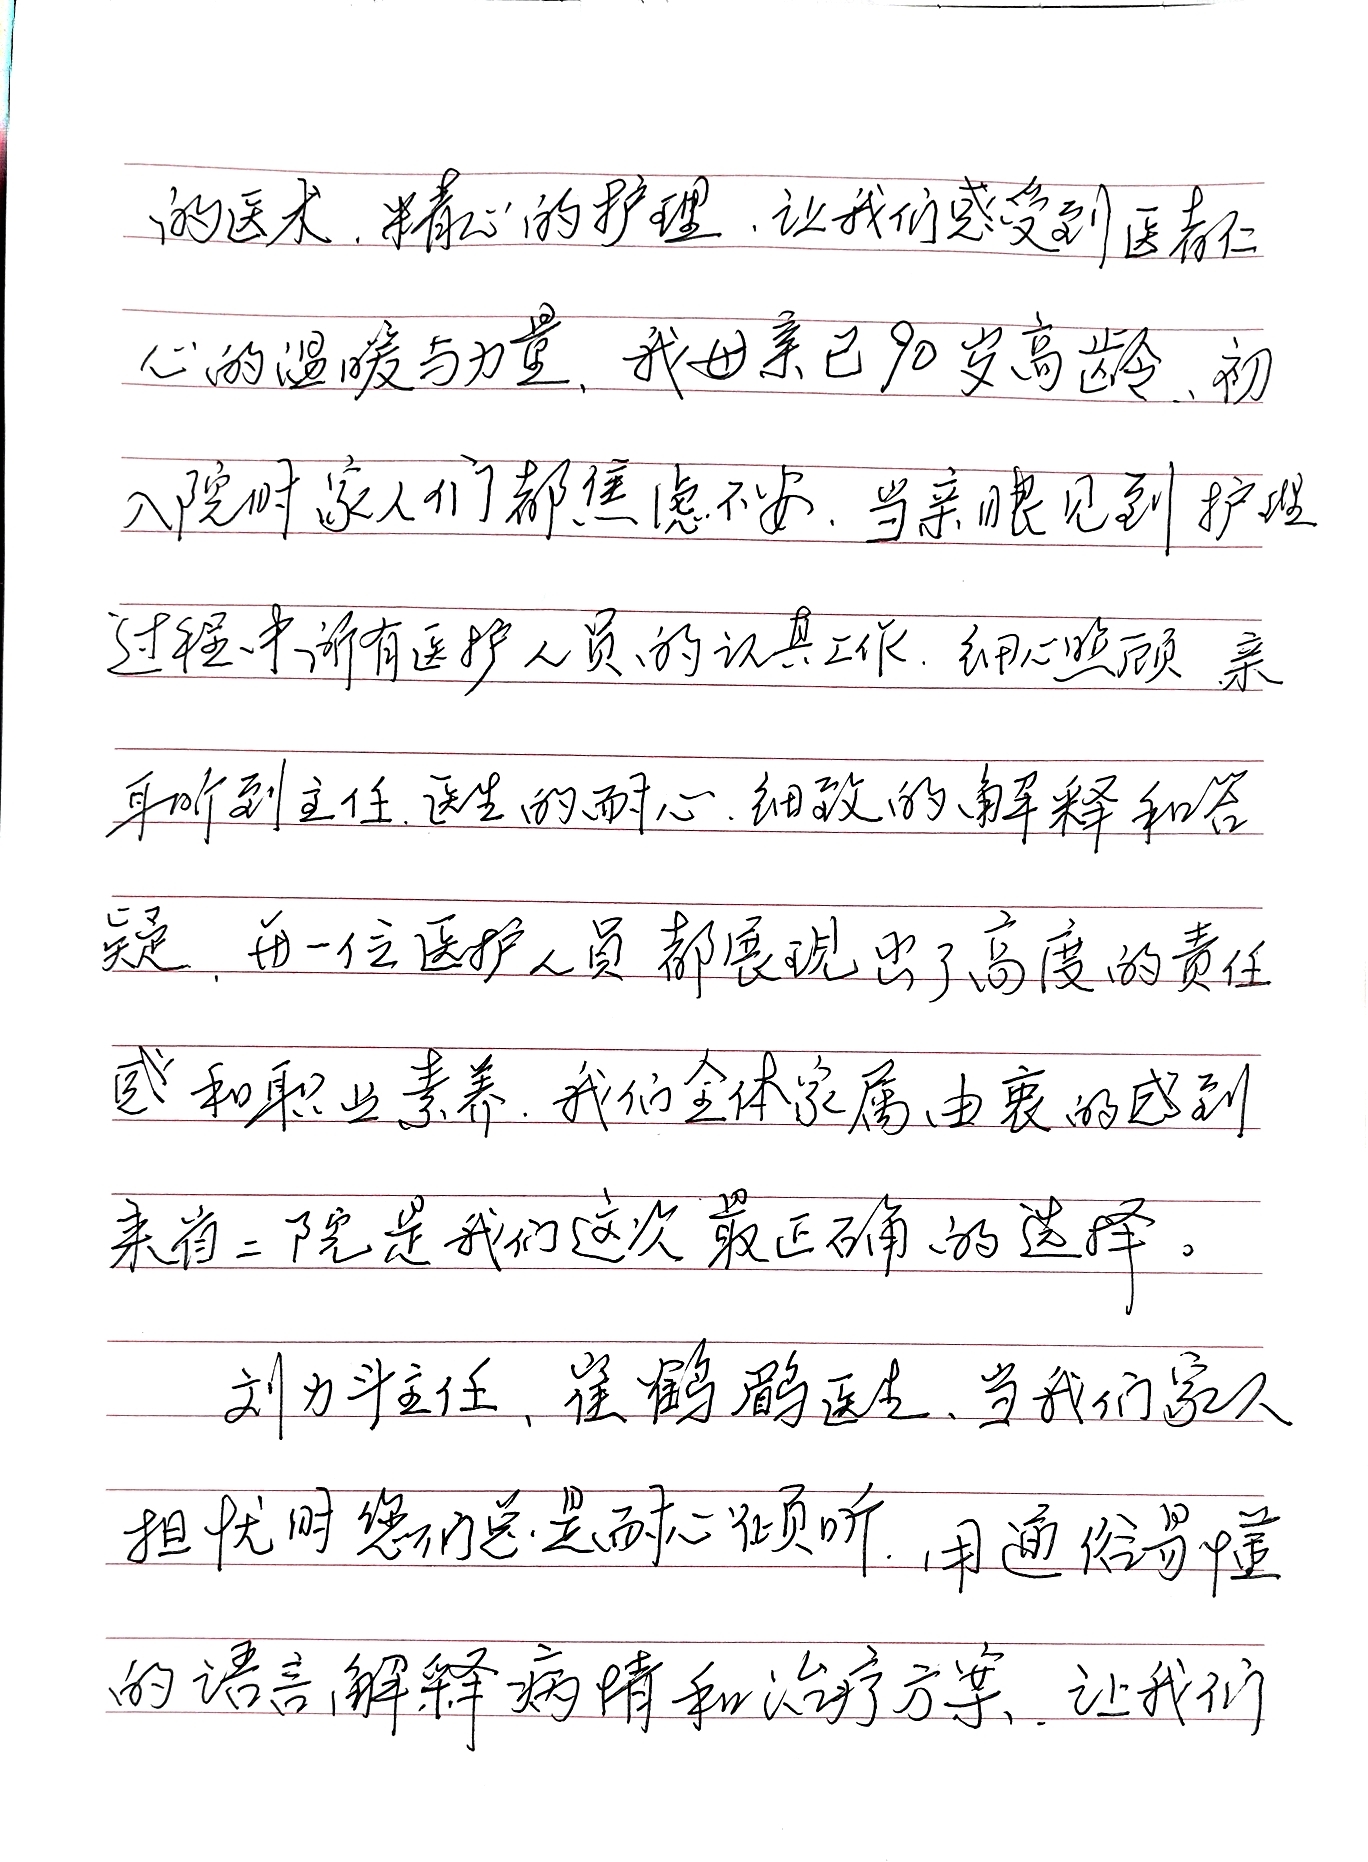 的医术、精心的护理,让我们感受到医者仁
心的温暖与力量、我母亲已90岁高龄、初
入院时家人们都焦虑不安,当亲眼见到护理
过程中所有医护人员的认真工作、细心照顾亲
耳听到主任、医生的耐心、细致的解释和答
疑,每一位医护人员都展现出了高度的责任
感和职业素养,我们全体家属由衷的感到
来省二院是我们这次最正确的选择。
刘力斗主任、崔鹤鹛医生、当我们家人
担忧时您们总是耐心倾听,用通俗易懂
的语言解释病情和治疗方案、让我们